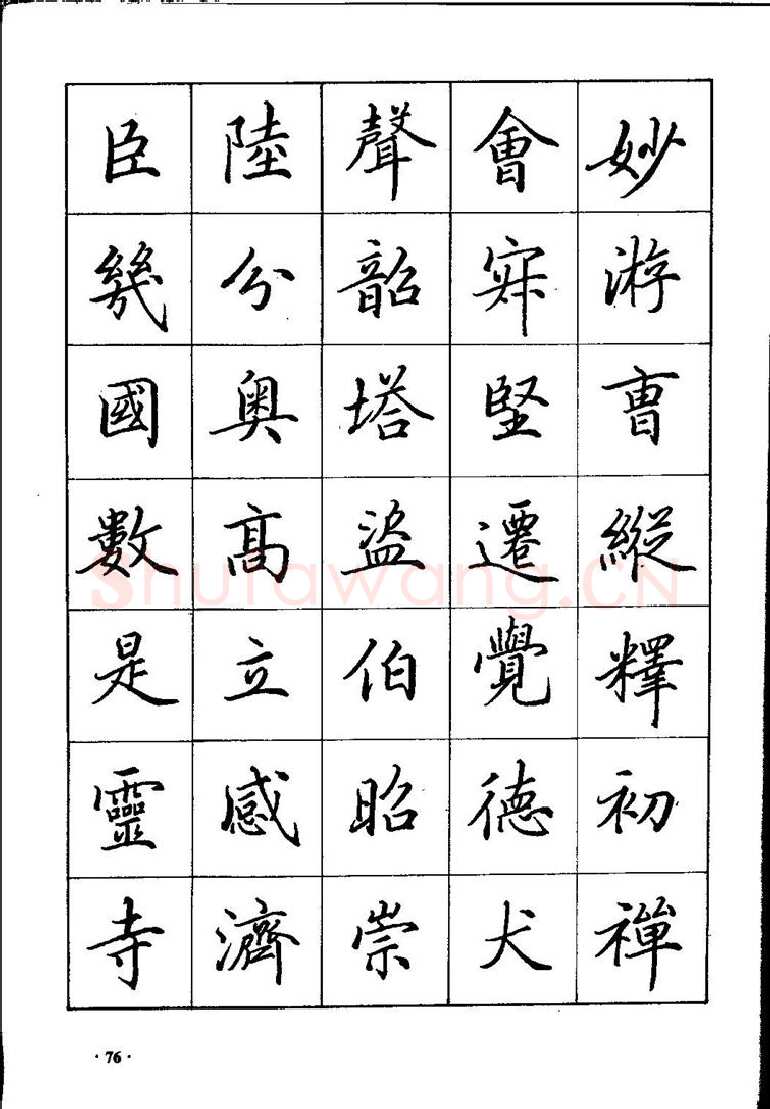 妙游曺縱釋初禪
會堅遷覺德犬
聲韶塔盜伯昭崇
陸分奧髙立感濟
臣幾國數是靈寺
Shufawang.CN
·76·